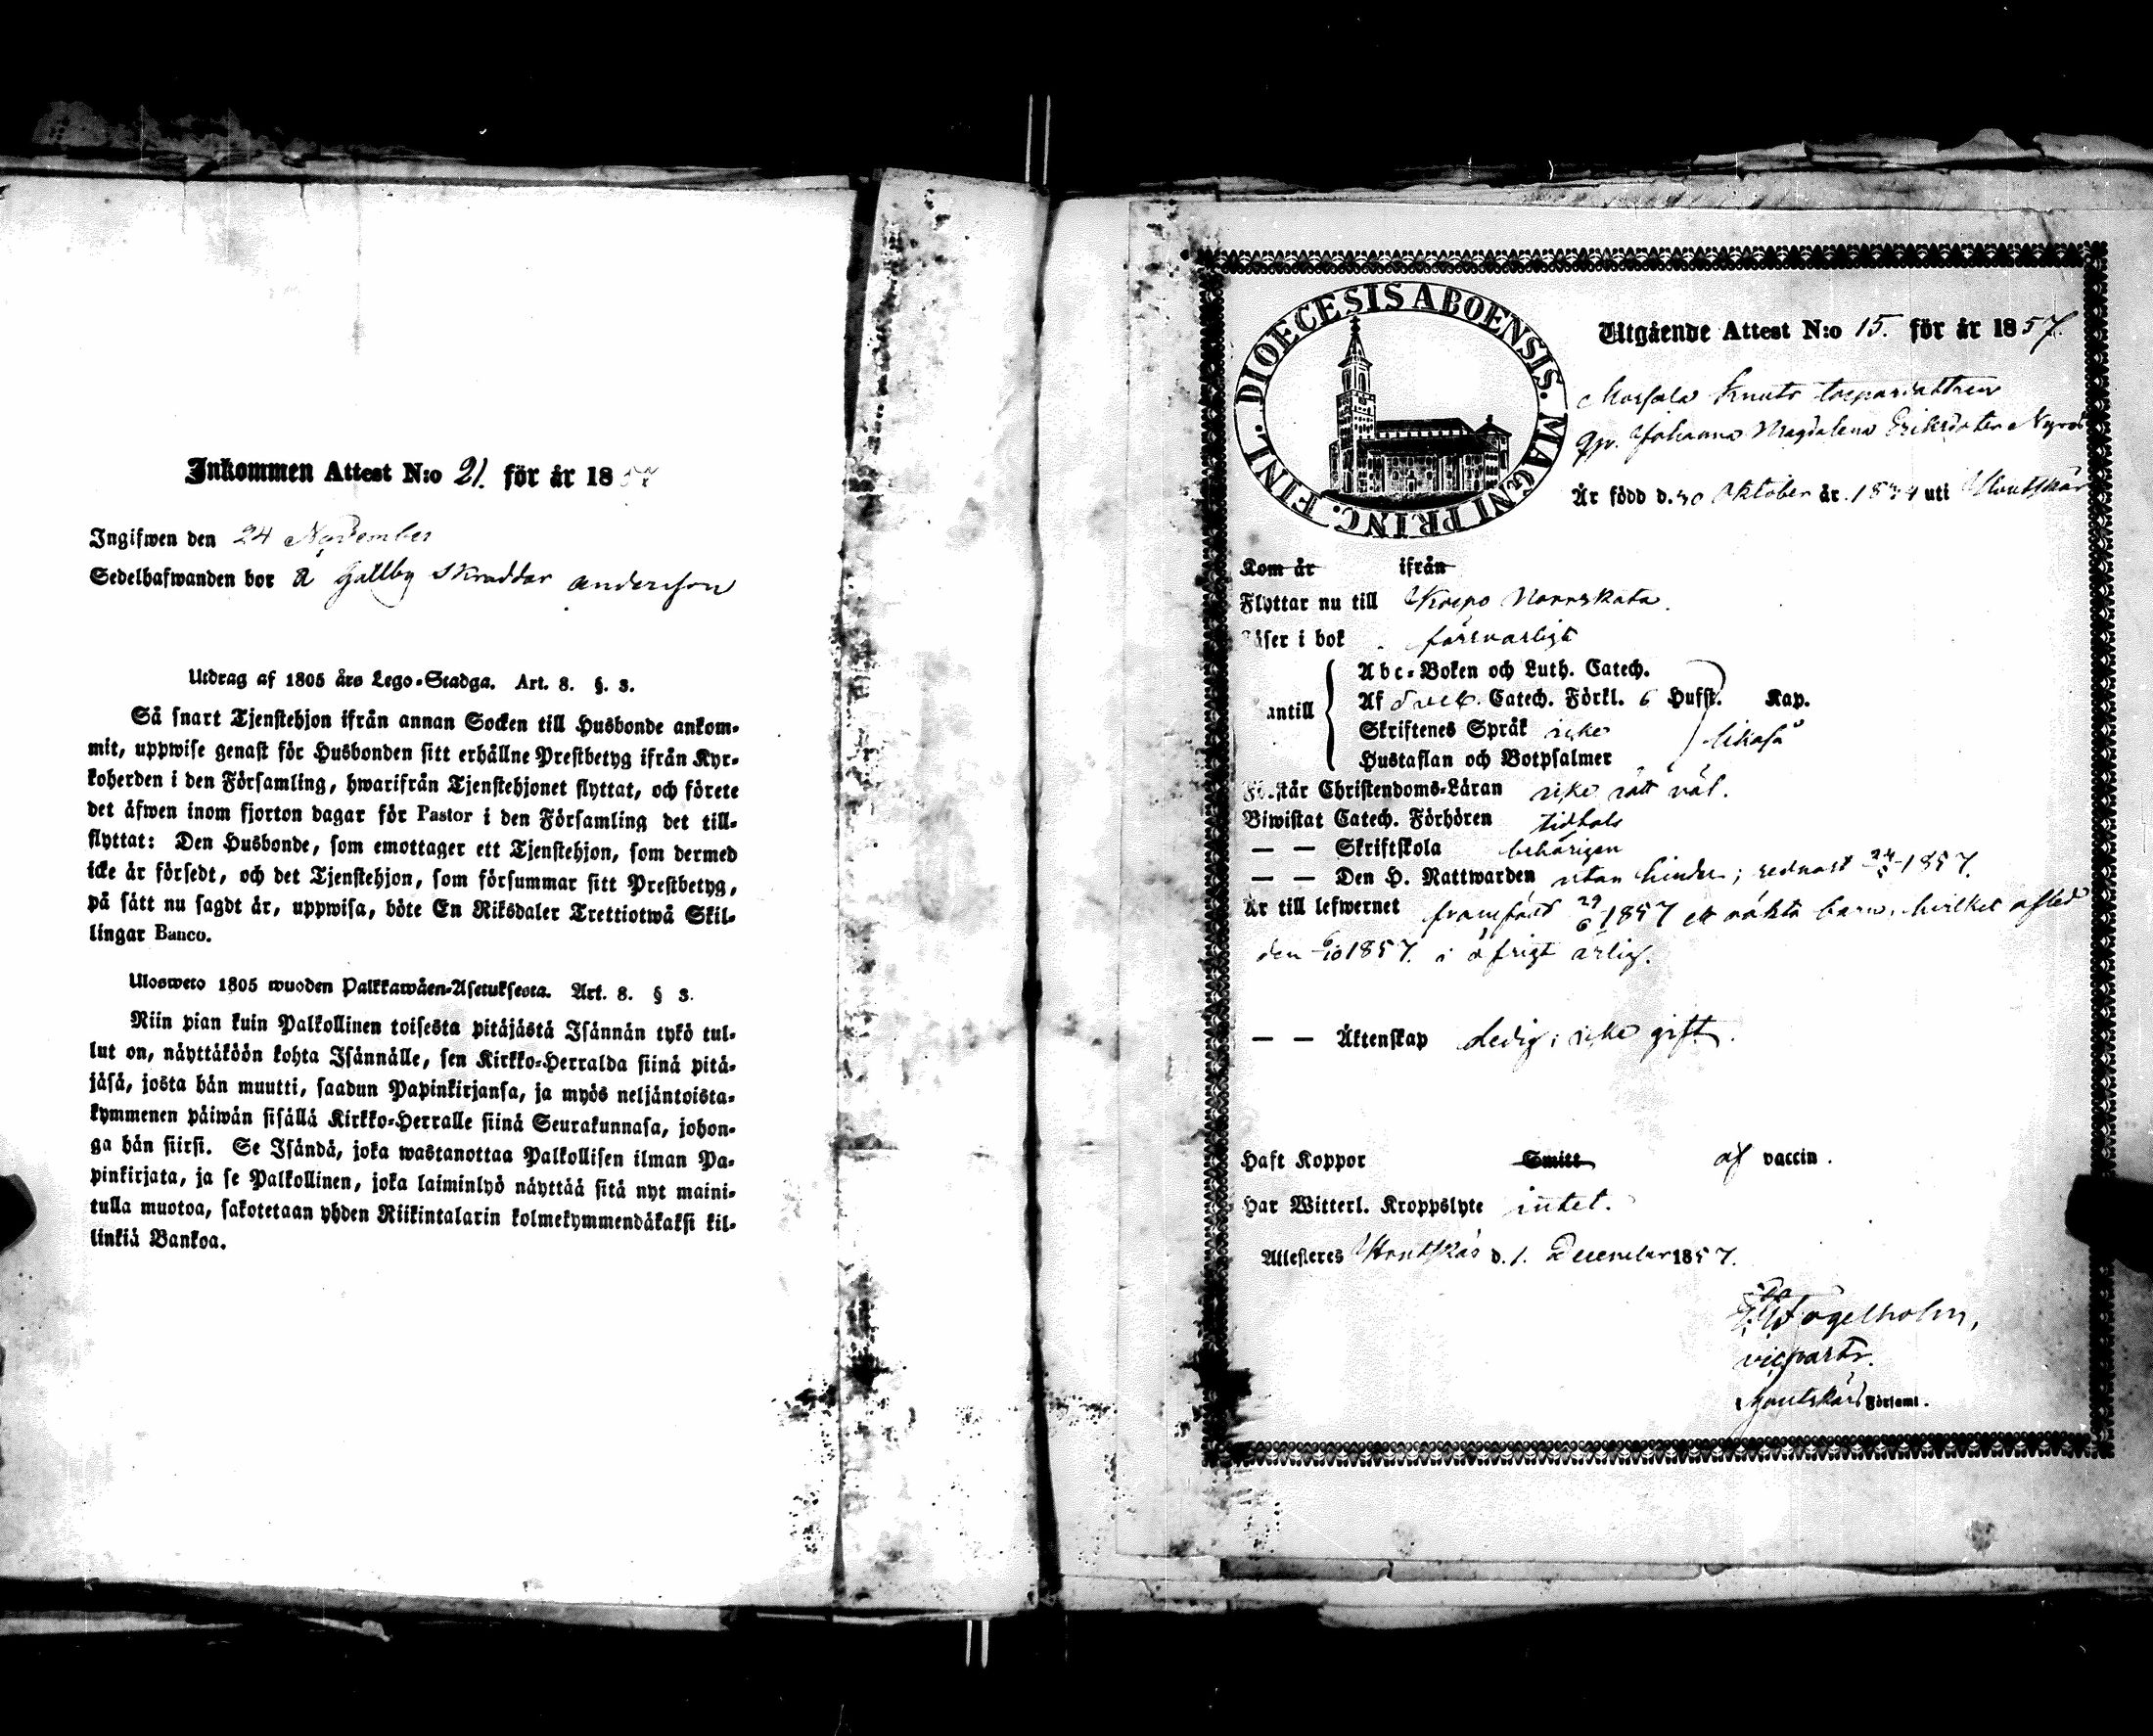 Inkommen Attest N:o 21. för år 1857
Ingifwen den 24 November
Sedelhafwanden bor å Gallby Skräddar Andersson
Utdrag af 1805 års Lego-Stadga. Art. 8. §. 3.
Så snart Tjenstehjon ifrån annan Socken till Husbonde ankom-
mit, uppwise genast för Husbonden sitt erhållne Prestbetyg ifrån Kyr-
koherden i den Församling, hwarifrån Tjenstehjonet flyttat, och förete
det äfwen inom fjorton dagar för Pastor i den Församling det till-
flyttat: Den Husbonde, som emottager ett Tjenstehjon, som dermed
icke är försedt, och det Tjenstehjon, som försummar sitt Prestbetyg,
på sätt nu sagdt är, uppwisa, böte En Riksdaler Trettiotwå Skil-
lingar Banco.
Ulosweto 1805 wuoden Palkkawäen-Asetuksesta. Art. 8. § 3.
Niin pian kuin Palkollinen toisesta pitäjästä Isännän tykö tul-
lut on, näyttäköön kohta Isännälle, sen Kirkko-Herralda siinä pitä-
jäsä, josta hän muutti, saadun Papinkirjansa, ja myös neljäntoista-
kymmenen päiwän sisällä Kirkko-Herralle siinä Seurakunnasa, johon-
ga hän siirsi. Se Isändä, joka wastanottaa Palkollisen ilman Pa-
pinkirjata, ja se Palkollinen, joka laiminlyö näyttää sitä nyt maini-
tulla muotoa, sakotetaan yhden Riikintalarin kolmekymmendäkaksi kil-
linkiä Bankoa.
DIOECESIS ABOENSIS. MAGNI PRINC. FINL.
Utgående Attest N:o 15. för år 1857.
Knuts torpardottren
Johanna Magdalena Eriksdotter
Är född d. 30 Oktober år 1834 uti Houtskär
Kom år ifrån
Flyttar nu till Korpo Norrskata.
Läser i bok försvarligt
antill
Abc-Boken och Luth. Catech.
Af Sveb. Catech. Förkl. 6 Hufst. Kap.
Skriftenes Språk icke
likaså
Hustaflan och Botpsalmer
Förstår Christendoms-Läran icke rätt väl.
Biwistat Catech. Förhören
— — Skriftskola behörigen
— — Den H. Nattwarden utan hinder; sednast 24/5 1857.
Är till lefwernet framfödt 29/6 1857 ett oäkta barn, hvilket afled
den 6/10 1857. i öfrigt ärlig.
— — Äktenskap Ledig; icke gift.
Haft Koppor Smitt af vaccin.
Har Witterl. Kroppslyte intet.
Attesteres Houtskär d. 1. December 1857.
Fogelholm,
vicpastr.
Houtskärs Församl.